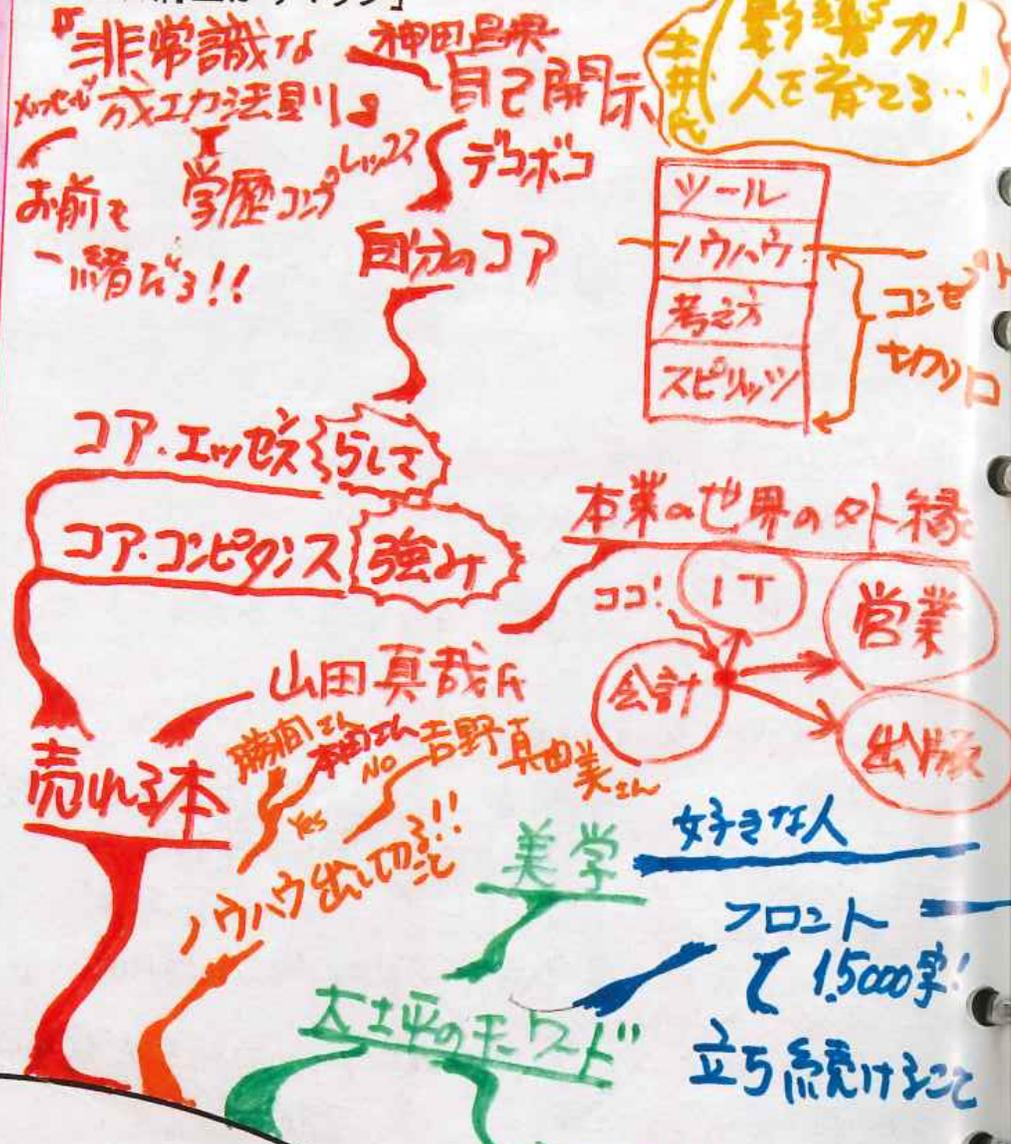 『非常識な
成功法則』
神田昌典
自己開示
メッセージ
お前も
一緒だろ!!
学歴コンプレックス
デコボコ
自分のコア
土井氏
影響力!
人を育てる…!
ツール
ノウハウ
考え方
スピリッツ
コンセプト
切り口
コア・エッセンス
らしさ
コア・コンピタンス
強み
本業の世界の外縁
ココ!
IT
営業
会計
出版
山田真哉氏
売れる本
勝間さん
本田さん
吉野真由美さん
Yes
NO
ノウハウ出し切ること!!
美学
好きな人
フロント
で 1,5000字!
立ち続けること